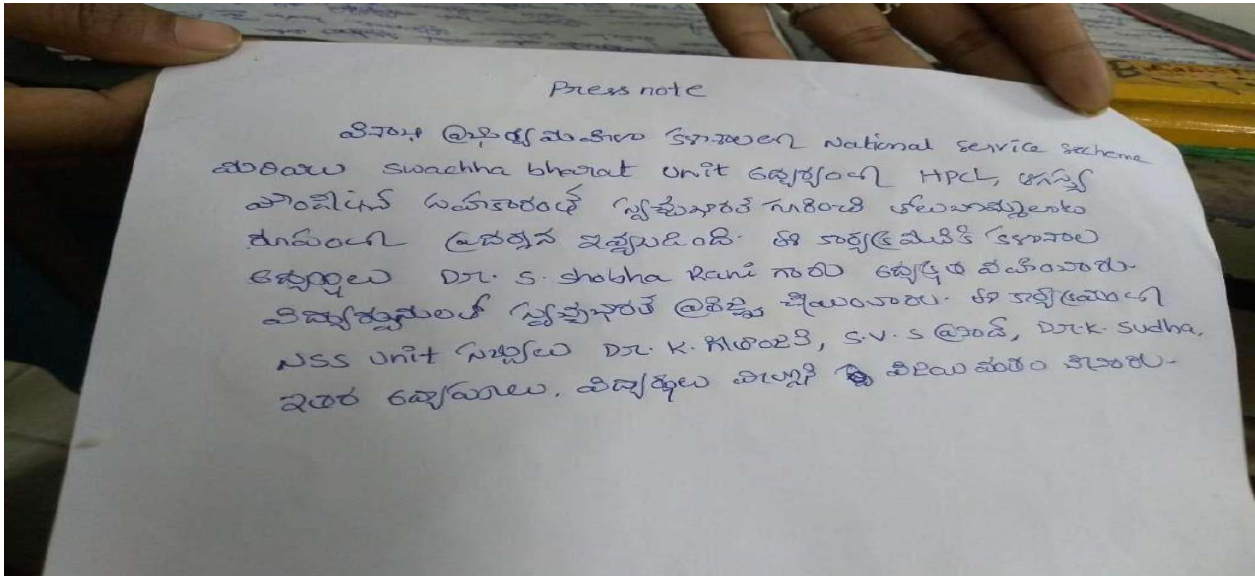 Press note
విశాఖ ప్రభుత్వ మహిళా కళాశాలలో National Service Secheme
మరియు Swachha bharat Unit ఆధ్వర్యంలో HPCL, అగస్త్య
ఫౌండేషన్ సహకారంతో స్వచ్ఛభారత్ గురించి తోలుబొమ్మలాట
రూపంలో ప్రదర్శన ఇవ్వబడింది. ఈ కార్యక్రమునికి కళాశాల
అధ్యక్షులు DR. S. Shobha Rani గారు అధ్యక్షత వహించారు.
విద్యార్థునులతో స్వచ్ఛభారత్ ప్రతిజ్ఞ చేయించారు. ఈ కార్యక్రమంలో
NSS Unit సభ్యులు DR. K. గీతాంజలి, S.V.S ఆనంద్, DR.K. Sudha,
ఇతర అధ్యాపకులు, విద్యార్థులు పాల్గొని విజయవంతం చేశారు.